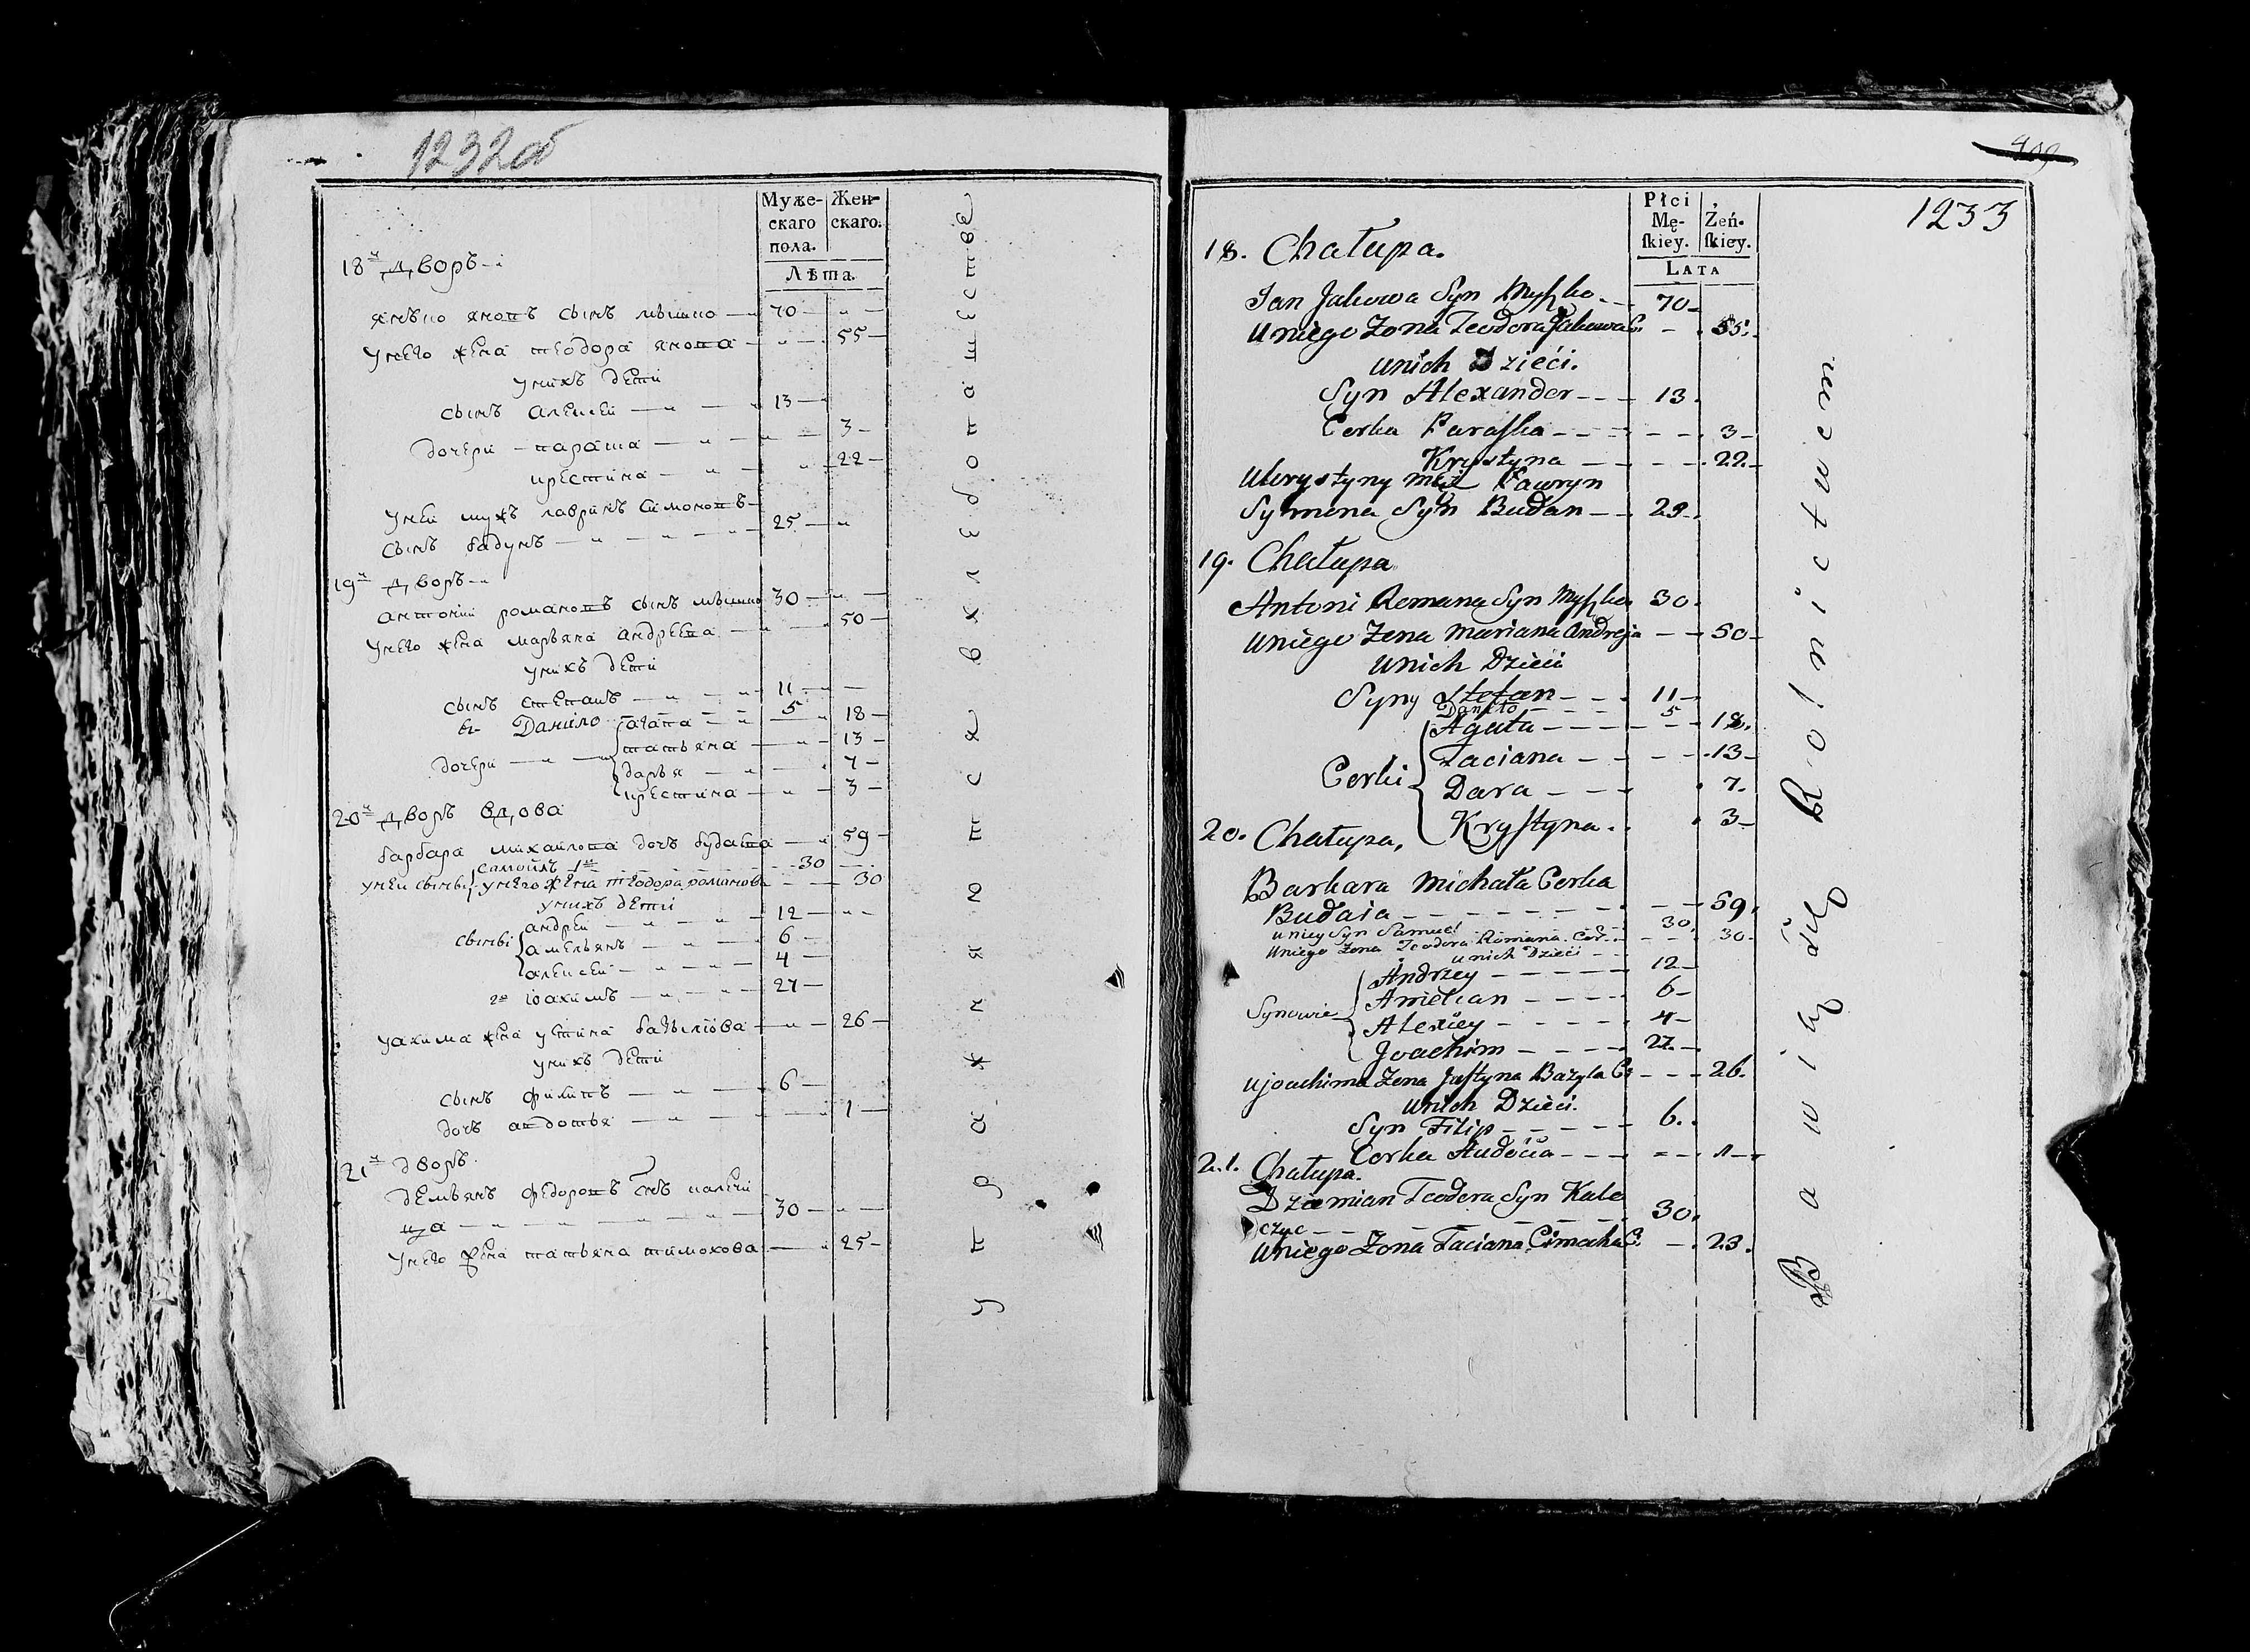 1232об
Муже-
скаго
пола.
Жен-
скаго.
Лѣта.
18й дворъ
янъко яковъ сынъ мышко 70
у него жена теодора якова 55
у нихъ дети
сынъ алексей 13
дочери параша 3
крестина 22
у ней мужъ лавринъ симоновъ
сынъ бадунъ 25
19й дворъ
антоний романовъ сынъ мышко 30
у него жена марьяна андреева 50
у нихъ дети
сынъ степанъ 11
Данило 5
агапа 18
татьяна 13
дочери
дарья 7
крестина 3
20й дворъ вдова
барбара михаилова дочь будаева 59
самойлъ 1й 30
у неи сыны у него жена теодора романова 30
у нихъ дети
андрей 12
сыны амельянъ 6
алексей 4
2й иоахимъ 27
у ахима жена устина базылiова 26
у нихъ дети
сынъ филипъ 6
дочь авдотья 1
21й дворъ
демьянъ федоровъ снъ калечи
ца 30
у него жена татьяна тимохова 25
упражняются въ хлебопашестве
409
1233
Płci
Mę-
ſkiey.
Żeń-
ſkiey.
LATA
18. Chałupa.
Jan Jakowa Syn Myſzko 70
U niego Żona Teodora Jakowa C. 55.
unich Dzieći.
Syn Alexander 13.
Corka Paraſka 3
Krystyna 22
Ukrystyny mąż Ławryn
Symona Syn Budan 29.
19. Chałupa
Antoni Romana Syn Myſzka 30.
Uniego Żona Mariana Andreja 50
Unich Dzieci
Syny Stefan 11
Daniło 5
Agata 18.
Taciana 13
Corki
Dara 7.
Kryſtyna. 3
20. Chałupa,
Barbara Michała Corka
Budaia 59.
uniey Syn Samuel 30
Uniego Żona Teodora Romana Cor. 30
unich Dzieci
Andrzey 12
Amelian 6
Synowie
Alexiey 4
Joachim 27.
Ujoachima Żona Juſtyna Bazyla C. 26.
Unich Dzieci.
Syn Filip 6.
Corka Audocia 1
21. Chałupa.
Dziemian Teodora Syn Kale
czyc 30.
Uniego Żona Taciana Cimacha C. 23.
Bawią się Rolnictwem